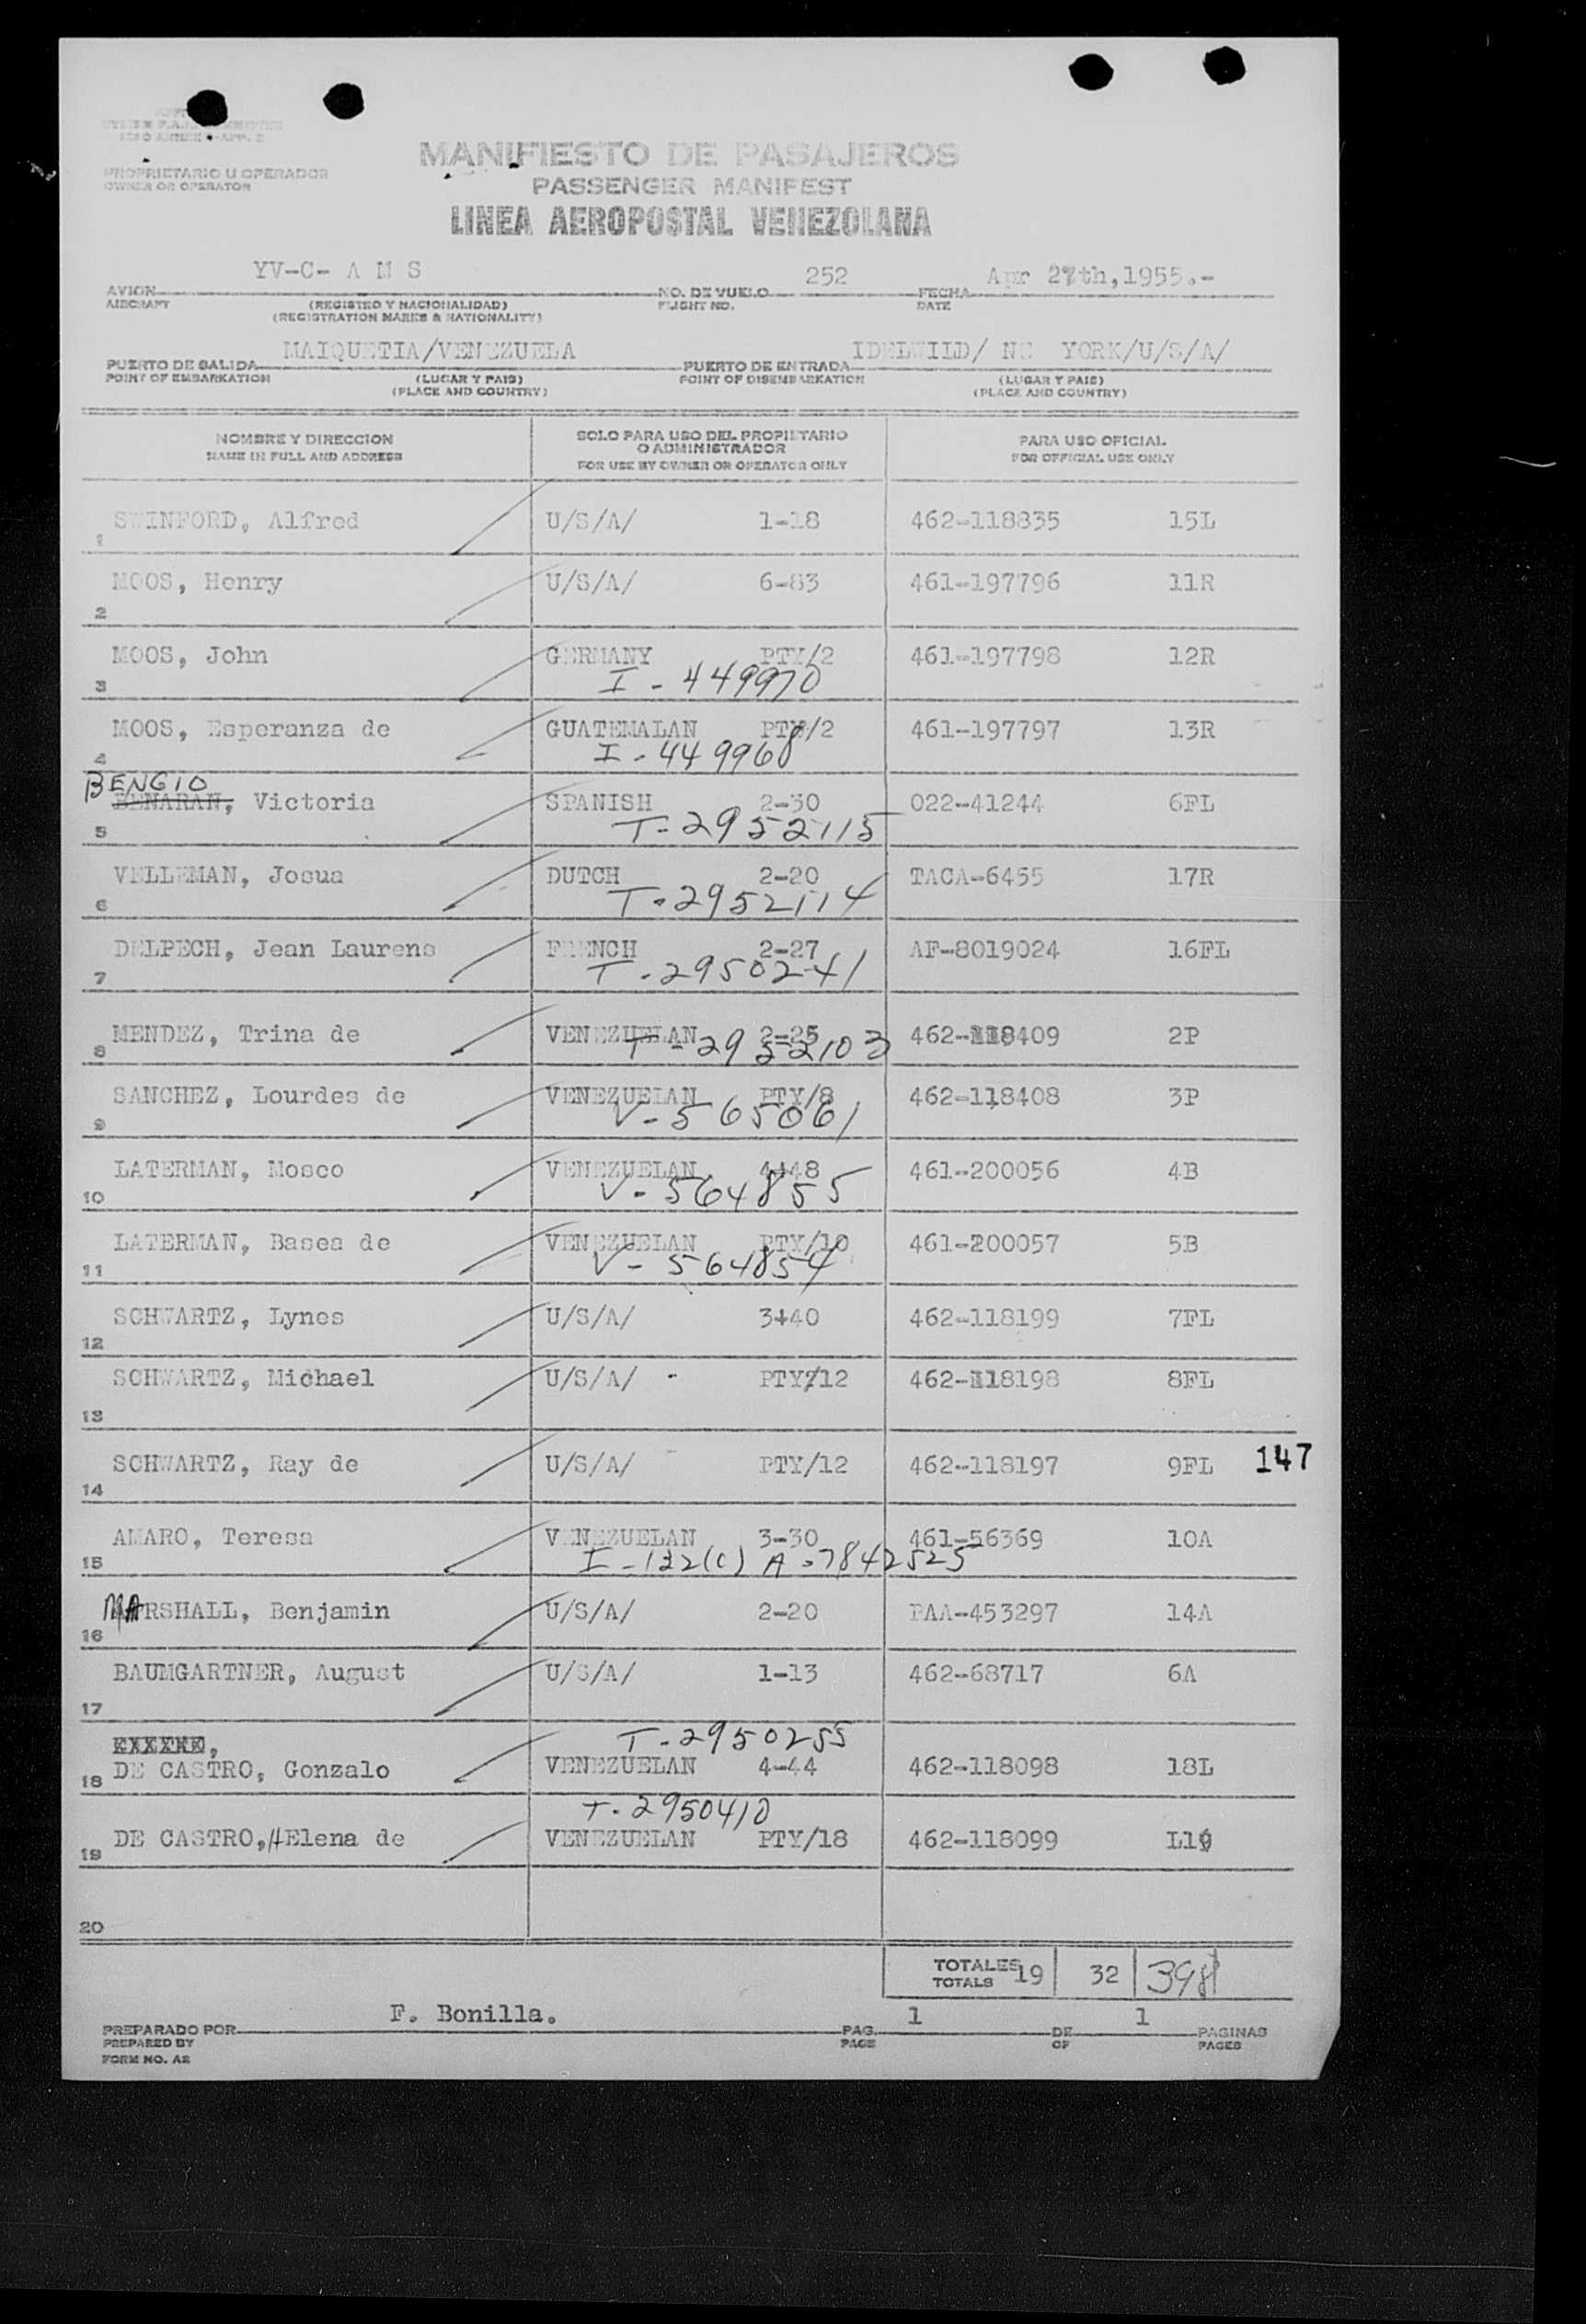 PROPRIETARIO U OPERADOR
OWNER OR OPERATOR
MANIFIESTO DE PASAJEROS
PASSENGER MANIFEST
LINEA AEROPOSTAL VENEZOLANA
YV-C- A M S 252 Apr 27th, 1955.-
AVION NO. DE VUELO FECHA
AIRCRAFT (REGISTRO Y NACIONALIDAD) FLIGHT NO. DATE
(REGISTRATION MARKS & NATIONALITY)
MAIQUETIA/VENEZUELA IDELWILD/ NE YORK/U/S/A/
PUERTO DE SALIDA PUERTO DE ENTRADA
POINT OF EMBARKATION (LUGAR Y PAIS) POINT OF DISEMBARKATION (LUGAR Y PAIS)
(PLACE AND COUNTRY) (PLACE AND COUNTRY)
NOMBRE Y DIRECCION
NAME IN FULL AND ADDRESS
SOLO PARA USO DEL PROPIETARIO
O ADMINISTRADOR
FOR USE BY OWNER OR OPERATOR ONLY
PARA USO OFICIAL
FOR OFFICIAL USE ONLY
SWINFORD, Alfred U/S/A/ 1-18 462-118835 15L
1
MOOS, Henry U/S/A/ 6-83 461-197796 11R
2
MOOS, John GERMANY PTY/2 461-197798 12R
3 I - 449970
MOOS, Esperanza de GUATEMALAN PTY/2 461-197797 13R
4 I - 449968
BENGIO
BENARAN, Victoria SPANISH 2-30 022-41244 6FL
5 T-2952115
VELLEMAN, Josua DUTCH 2-20 TACA-6455 17R
6 T-2952114
DELPECH, Jean Laurens FRENCH 2-27 AF-8019024 16FL
7 T-2950241
MENDEZ, Trina de VENEZUELAN 2-25 462-118409 2P
8 T-2952103
SANCHEZ, Lourdes de VENEZUELAN PTY/8 462-118408 3P
9 V-565061
LATERMAN, Mosco VENEZUELAN 4-48 461-200056 4B
10 V-564855
LATERMAN, Basea de VENEZUELAN PTY/10 461-200057 5B
11 V-564854
SCHWARTZ, Lynes U/S/A/ 3-40 462-118199 7FL
12
SCHWARTZ, Michael U/S/A/ PTY/12 462-118198 8FL
13
SCHWARTZ, Ray de U/S/A/ PTY/12 462-118197 9FL 147
14
AMARO, Teresa VENEZUELAN 3-30 461-56369 10A
15 I-122(c) A-7842525
MARSHALL, Benjamin U/S/A/ 2-20 PAA-453297 14A
16
BAUMGARTNER, August U/S/A/ 1-13 462-68717 6A
17
T-2950255
18 DE CASTRO, Gonzalo VENEZUELAN 4-44 462-118098 18L
T-2950410
19 DE CASTRO, HElena de VENEZUELAN PTY/18 462-118099 L19
20
TOTALES 19 32 398
TOTALS
F. Bonilla. 1 1
PREPARADO POR PAG. DE PAGINAS
PREPARED BY PAGE OF PAGES
FORM NO. A2